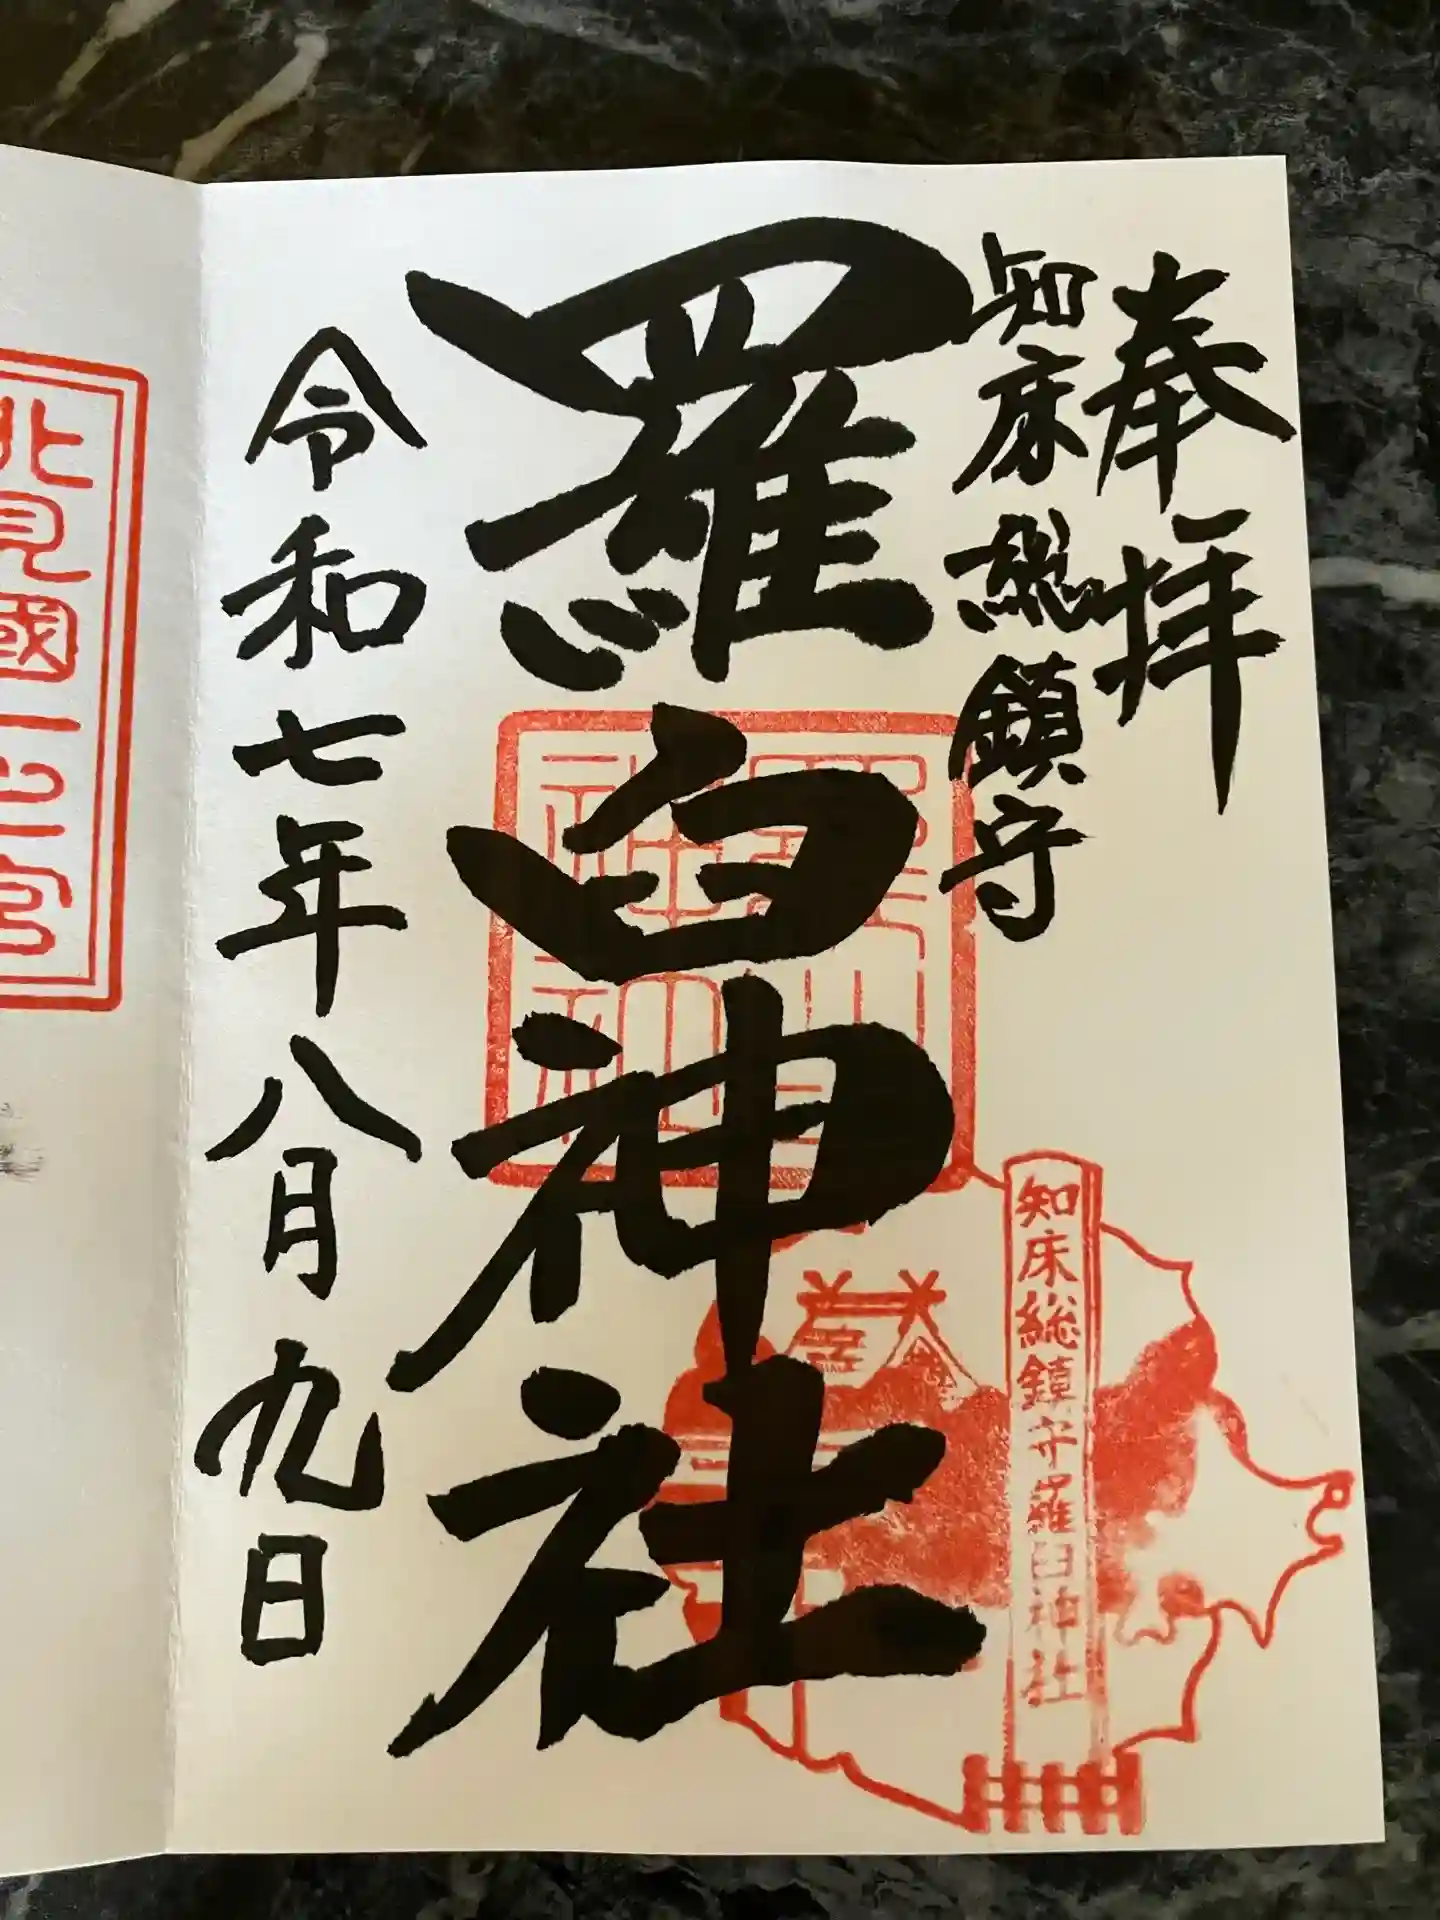 奉拝
知床総鎮守
羅臼神社
令和七年八月九日
羅臼神社
知床総鎮守羅臼神社
北見國一之宮